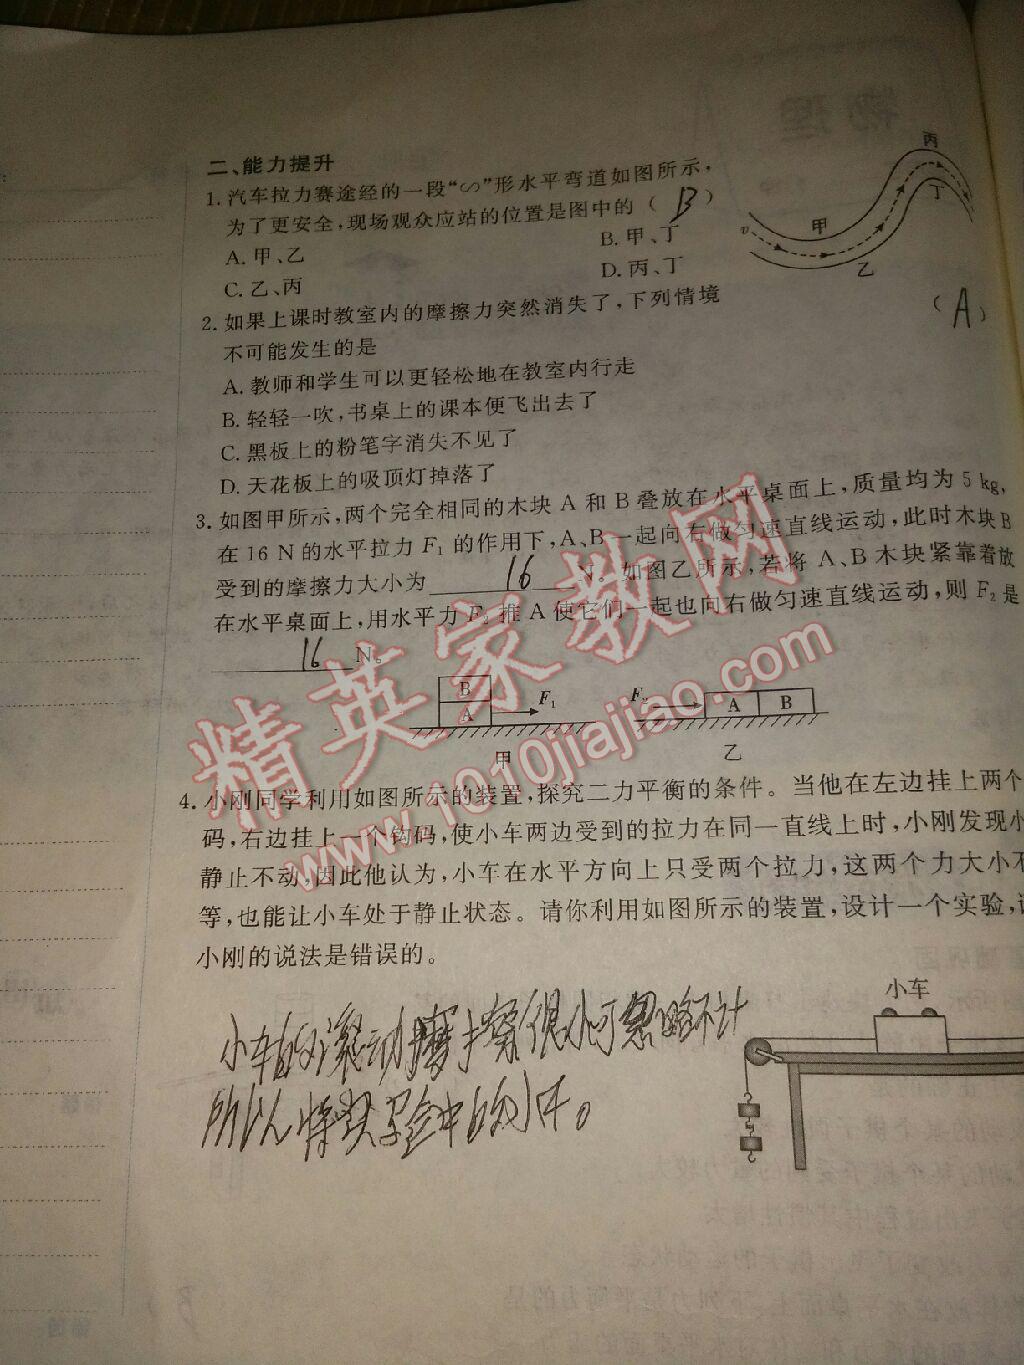 二、能力提升
1. 汽车拉力赛途经的一段“∽”形水平弯道如图所示，
为了更安全，现场观众应站的位置是图中的（ B ）
A. 甲、乙 B. 甲、丁
C. 乙、丙 D. 丙、丁
丙
丁
甲
乙
v
2. 如果上课时教室内的摩擦力突然消失了，下列情境
不可能发生的是 （ A ）
A. 教师和学生可以更轻松地在教室内行走
B. 轻轻一吹，书桌上的课本便飞出去了
C. 黑板上的粉笔字消失不见了
D. 天花板上的吸顶灯掉落了
3. 如图甲所示，两个完全相同的木块 A 和 B 叠放在水平桌面上，质量均为 5 kg，
在 16 N 的水平拉力 F₁ 的作用下，A、B 一起向右做匀速直线运动，此时木块 B
受到的摩擦力大小为 16 N。如图乙所示，若将 A、B 木块紧靠着放
在水平桌面上，用水平力 F₂ 推 A 使它们一起也向右做匀速直线运动，则 F₂ 是
16 N。
B
A F₁
甲
F₂ A B
乙
4. 小刚同学利用如图所示的装置，探究二力平衡的条件。当他在左边挂上两个
码，右边挂上一个钩码，使小车两边受到的拉力在同一直线上时，小刚发现小
静止不动，因此他认为，小车在水平方向上只受两个拉力，这两个力大小不
等，也能让小车处于静止状态。请你利用如图所示的装置，设计一个实验，
小刚的说法是错误的。
小车
小车的滚动摩擦很小可忽略不计
所以将实验中的
物理
精英家教网
www.1010jiajiao.com